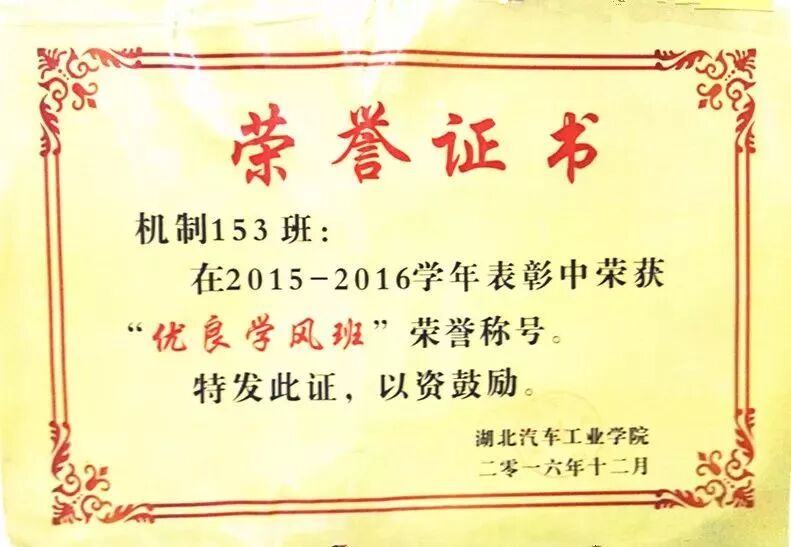 荣誉证书
机制153班：
在2015-2016学年表彰中荣获
“优良学风班”荣誉称号。
特发此证，以资鼓励。
湖北汽车工业学院
二零一六年十二月